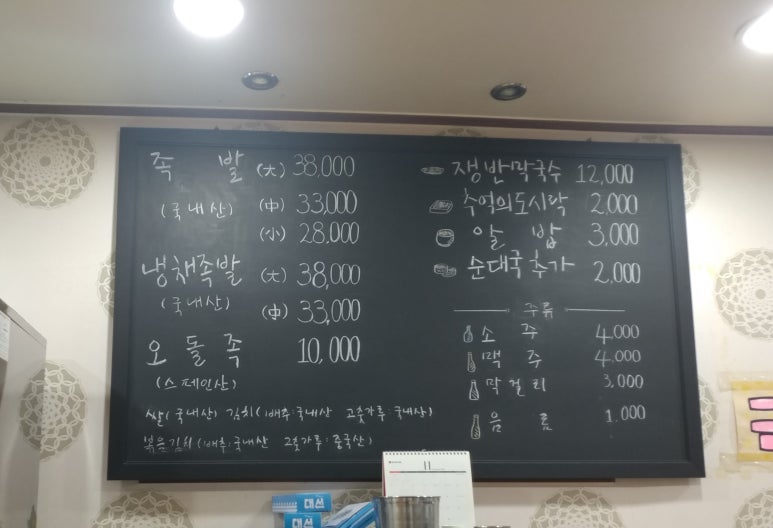 족 발 (大) 38,000
(국내산) (中) 33,000
(小) 28,000
냉채족발 (大) 38,000
(국내산) (中) 33,000
오돌족 10,000
(스페인산)
쌀(국내산) 김치(배추:국내산 고춧가루:국내산)
볶음김치(배추:국내산 고춧가루:중국산)
쟁반막국수 12,000
추억의도시락 2,000
알 밥 3,000
순대국추가 2,000
주류
소 주 4,000
맥 주 4,000
막걸리 3,000
음 료 1,000
11
대쓰